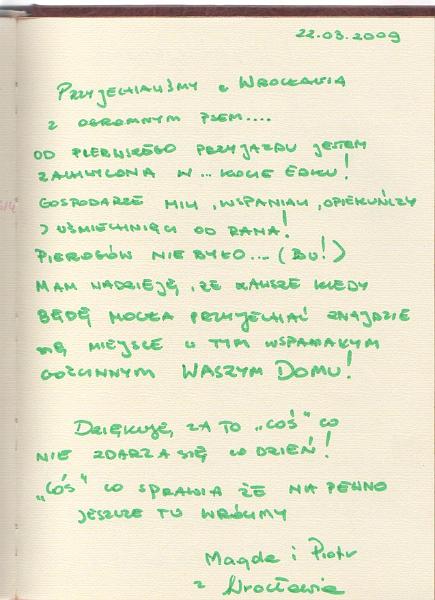 22.03.2009
PRZYJECHALIŚMY z WROCŁAWIA
z OGROMNYM PSEM....
OD PIERWSZEGO PRZYJAZDU JESTEM
ZACHWYCONA W... KOCIE EDKU!
GOSPODARZE MILI, WSPANIALI, OPIEKUŃCZY
I UŚMIECHNIĘCI OD RANA!
PIEROGÓW NIE BYŁO... (BU!)
MAM NADZIEJĘ, ŻE ZAWSZE KIEDY
BĘDĘ MOGŁA PRZYJECHAĆ ZNAJDZIE
SIĘ MIEJSCE W TYM WSPANIAŁYM
GOŚCINNYM WASZYM DOMU!
DZIĘKUJĘ, ZA TO „COŚ" CO
NIE ZDARZA SIĘ CO DZIEŃ!
„COŚ" CO SPRAWIA ŻE NA PEWNO
JESZCZE TU WRÓCIMY
Magda i Piotr
z Wrocławia